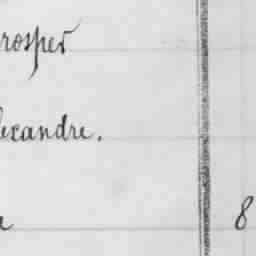 rosper
lexandre.
8